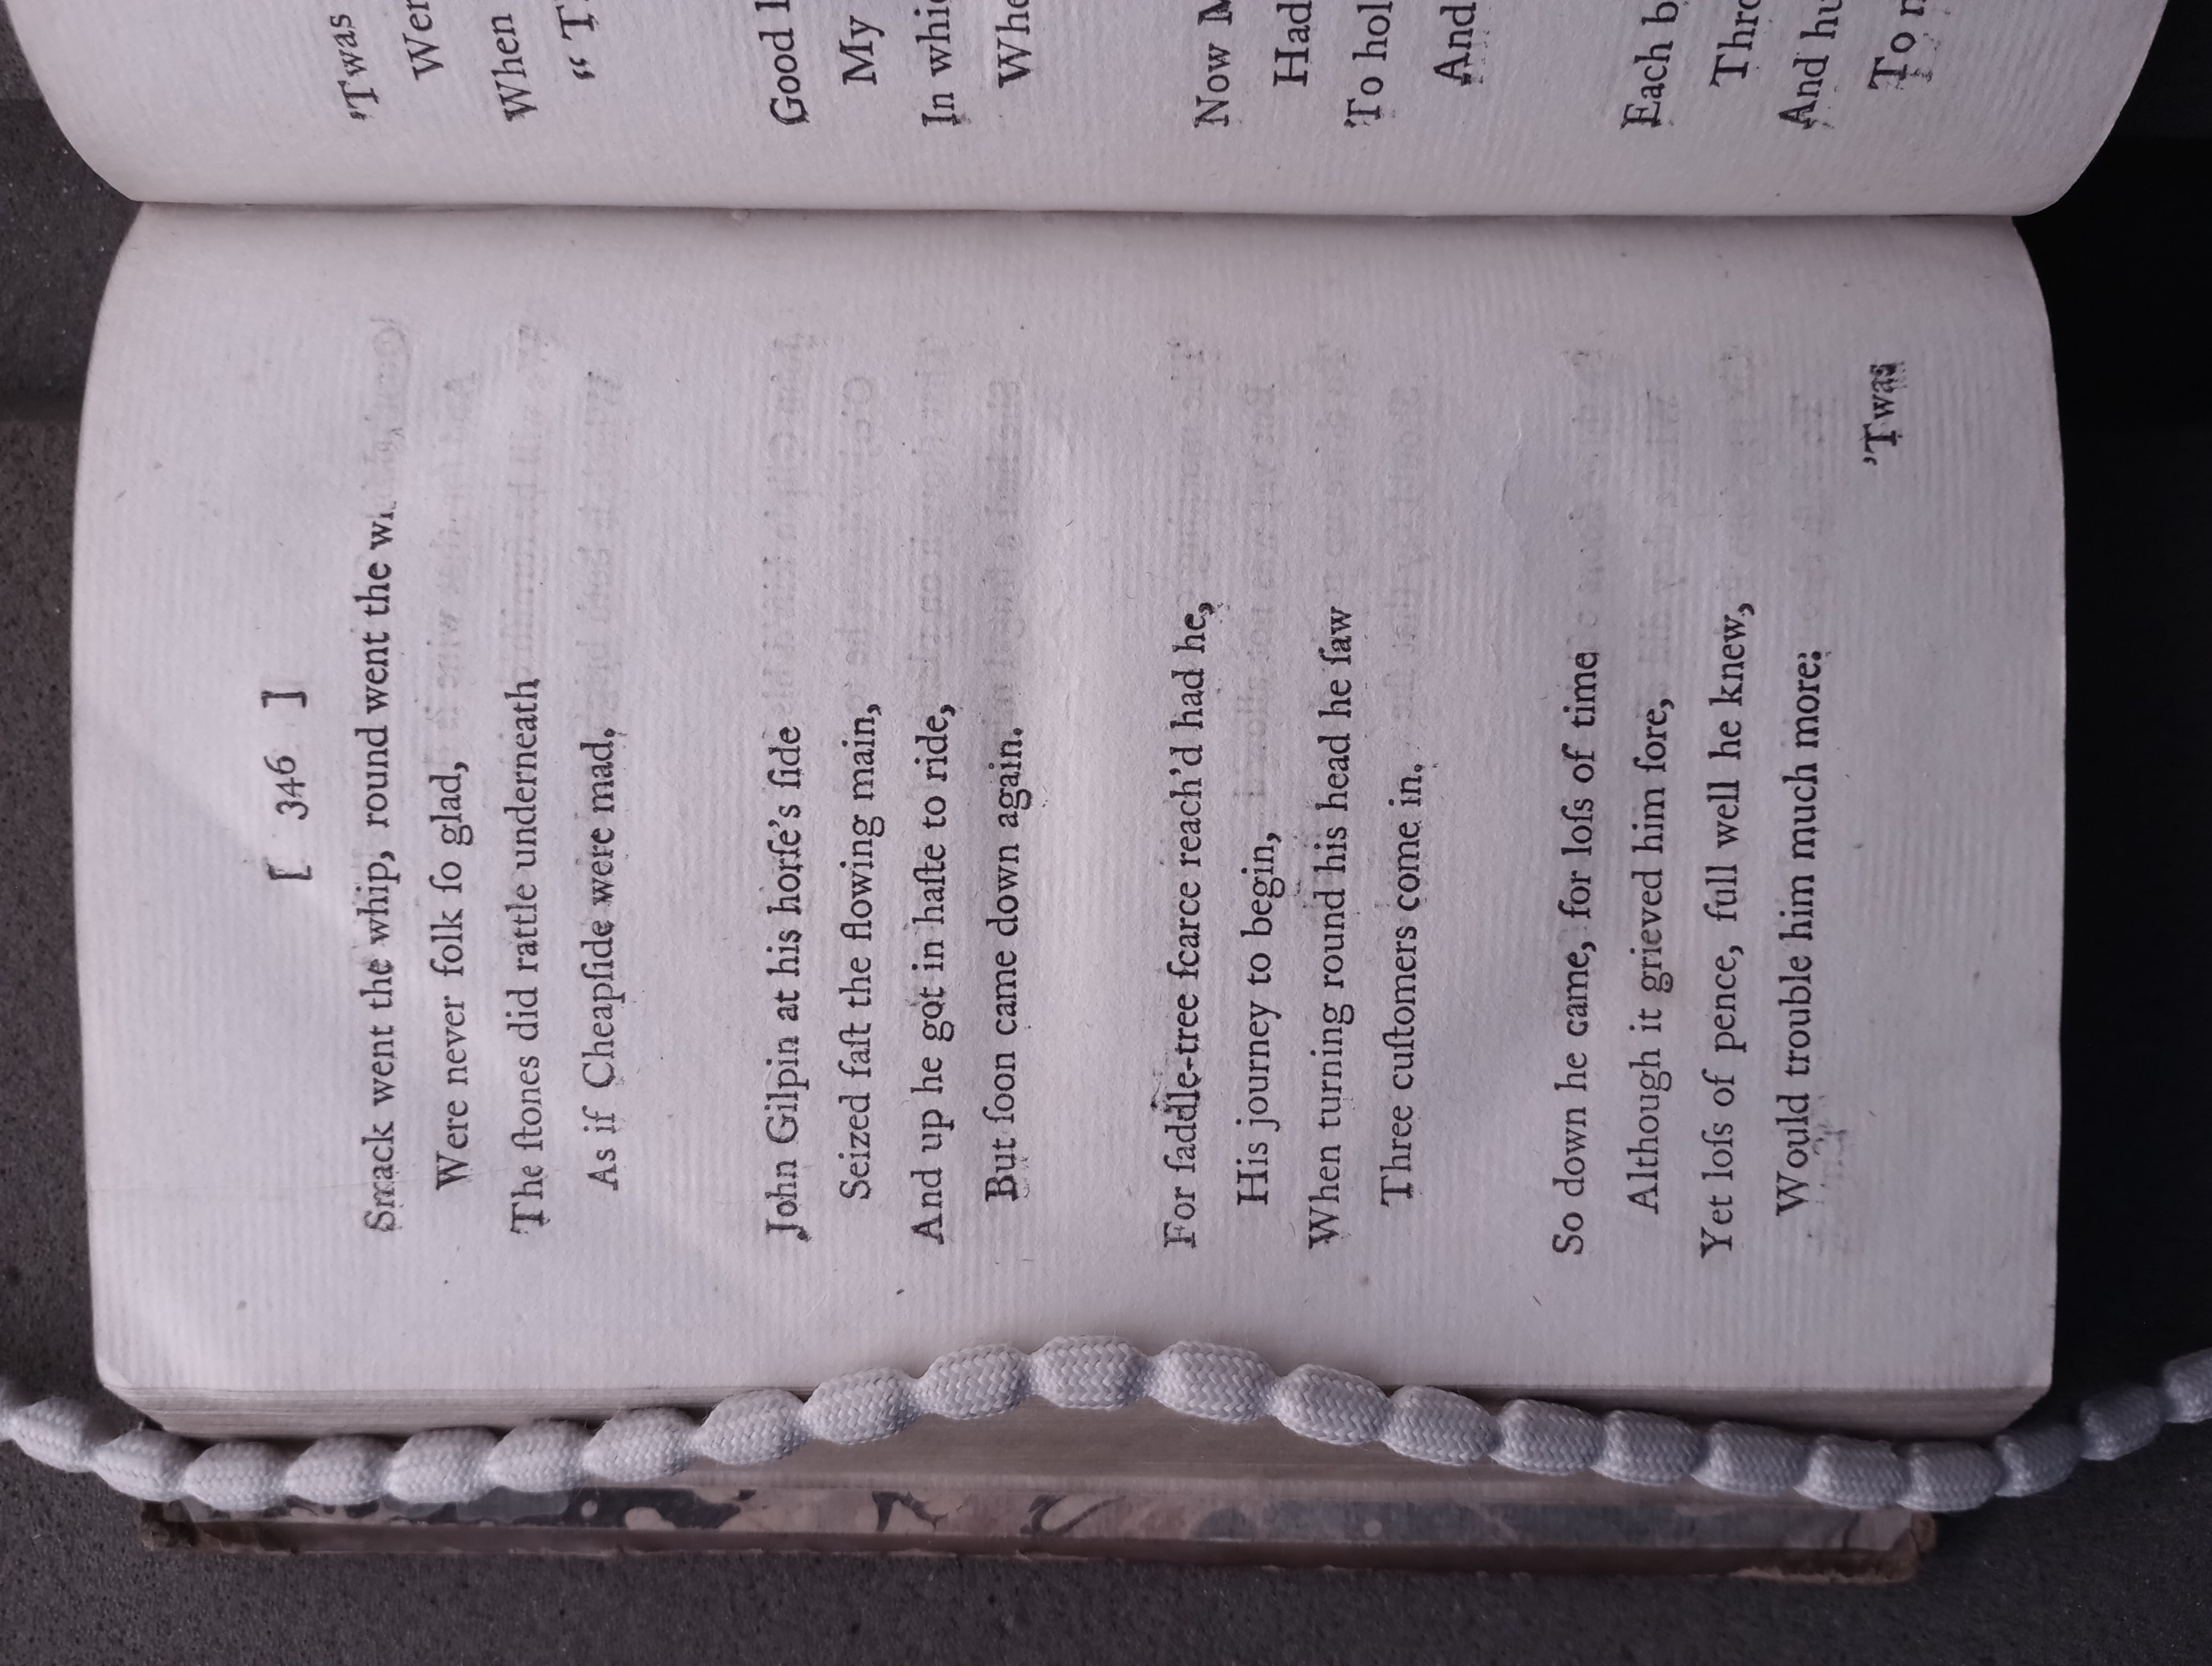 [ 346 ]
Smack went the whip, round went the
Were never folk ſo glad,
The ſtones did rattle underneath
As if Cheapſide were mad,
John Gilpin at his horſe's ſide
Seized faſt the flowing main,
And up he got in haſte to ride,
But ſoon came down again.
For ſaddle-tree ſcarce reach'd had he,
His journey to begin,
When turning round his head he ſaw
Three cuſtomers come in.
So down he came, for loſs of time
Although it grieved him ſore,
Yet loſs of pence, full well he knew,
Would trouble him much more:
'Twas
'Twas
Wer
When
“ T
Good
My
In whi
Whe
Now M
Had
To hol
And
Each b
Thro
And hu
To